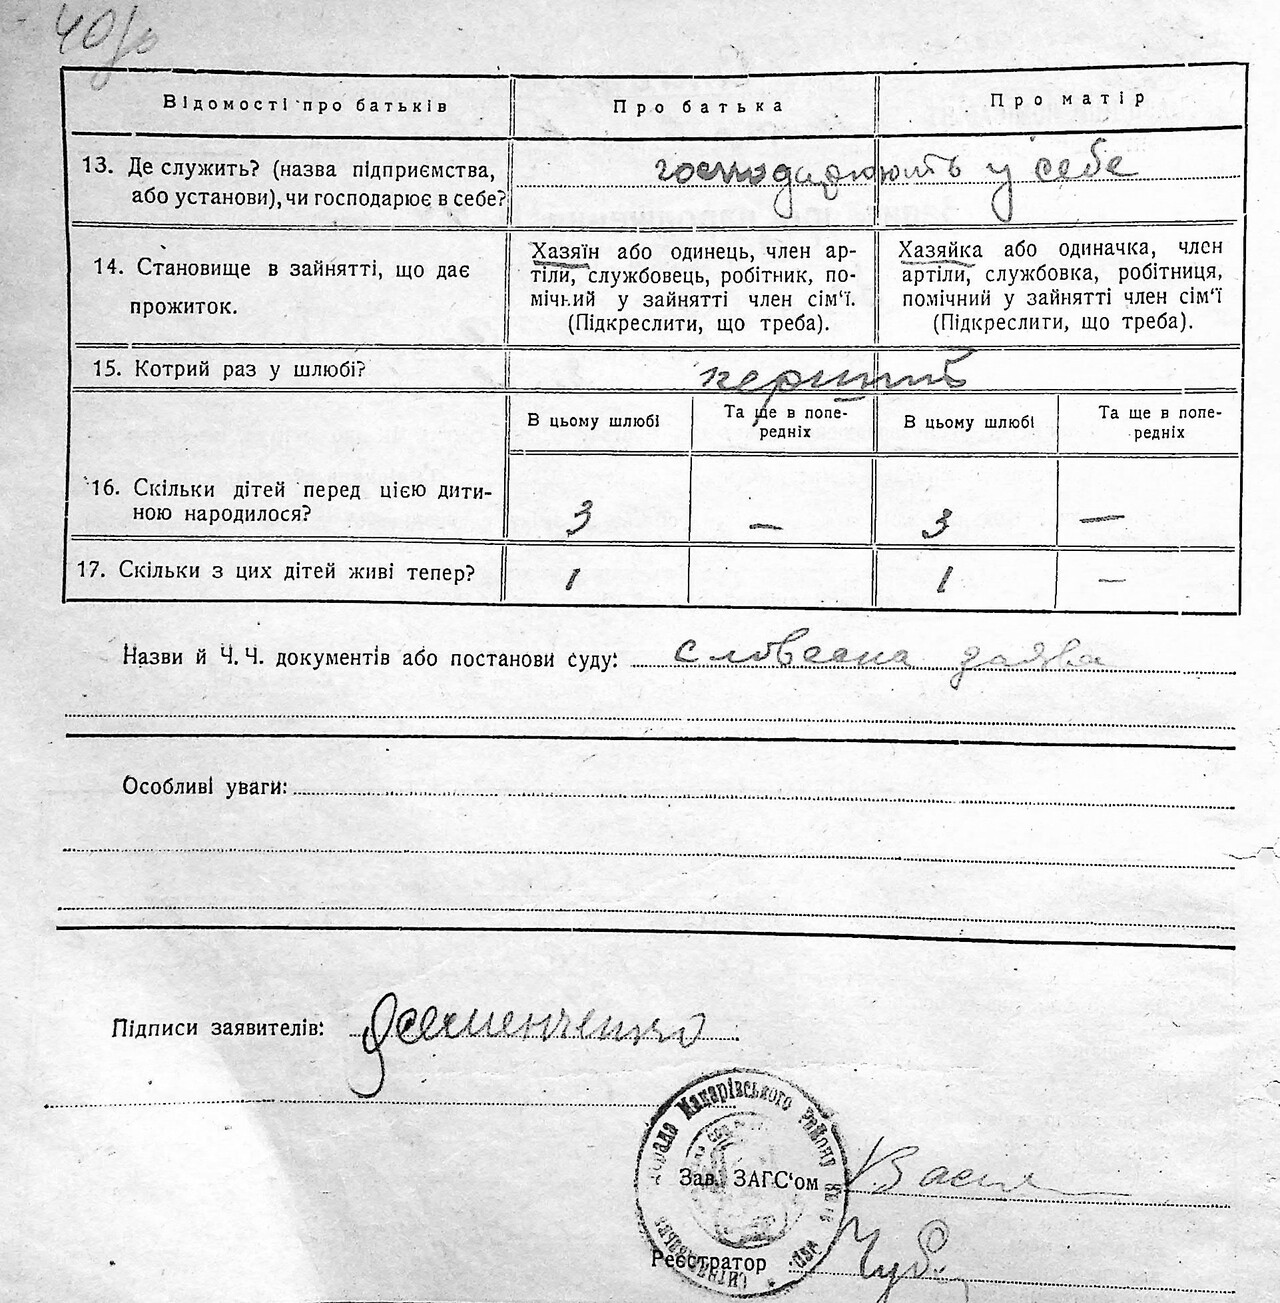 Відомості про батьків
Про батька
Про матір
13. Де служить? (назва підприємства,
або установи), чи господарює в себе?
господарюють у себе
14. Становище в зайнятті, що дає
прожиток.
Хазяїн або одинець, член ар-
тіли, службовець, робітник, по-
мічний у зайнятті член сім'ї.
(Підкреслити, що треба).
Хазяйка або одиначка, член
артіли, службовка, робітниця,
помічний у зайнятті член сім'ї
(Підкреслити, що треба).
15. Котрий раз у шлюбі?
перший
В цьому шлюбі
Та ще в попе-
редніх
В цьому шлюбі
Та ще в попе-
редніх
16. Скільки дітей перед цією дити-
ною народилося?
3 — 3 —
17. Скільки з цих дітей живі тепер?
1 1 —
Назви й Ч. Ч. документів або постанови суду: словесна заява
Особливі уваги:
Підписи заявителів:
Макарівського Району
Зав. ЗАГС'ом
Реєстратор